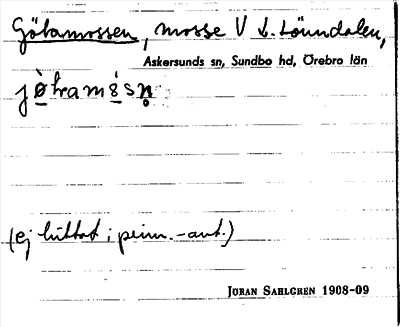 Götamossen, mosse V L. Lönndalen,
Askersunds sn, Sundbo hd, Örebro län
(ej hittat i prim.-ant.)
JÖRAN SAHLGREN 1908-09